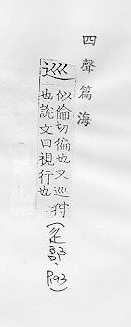 四聲篇海
巡
似倫切徧也又巡狩
也說文曰視行也
(辵部、P.193)